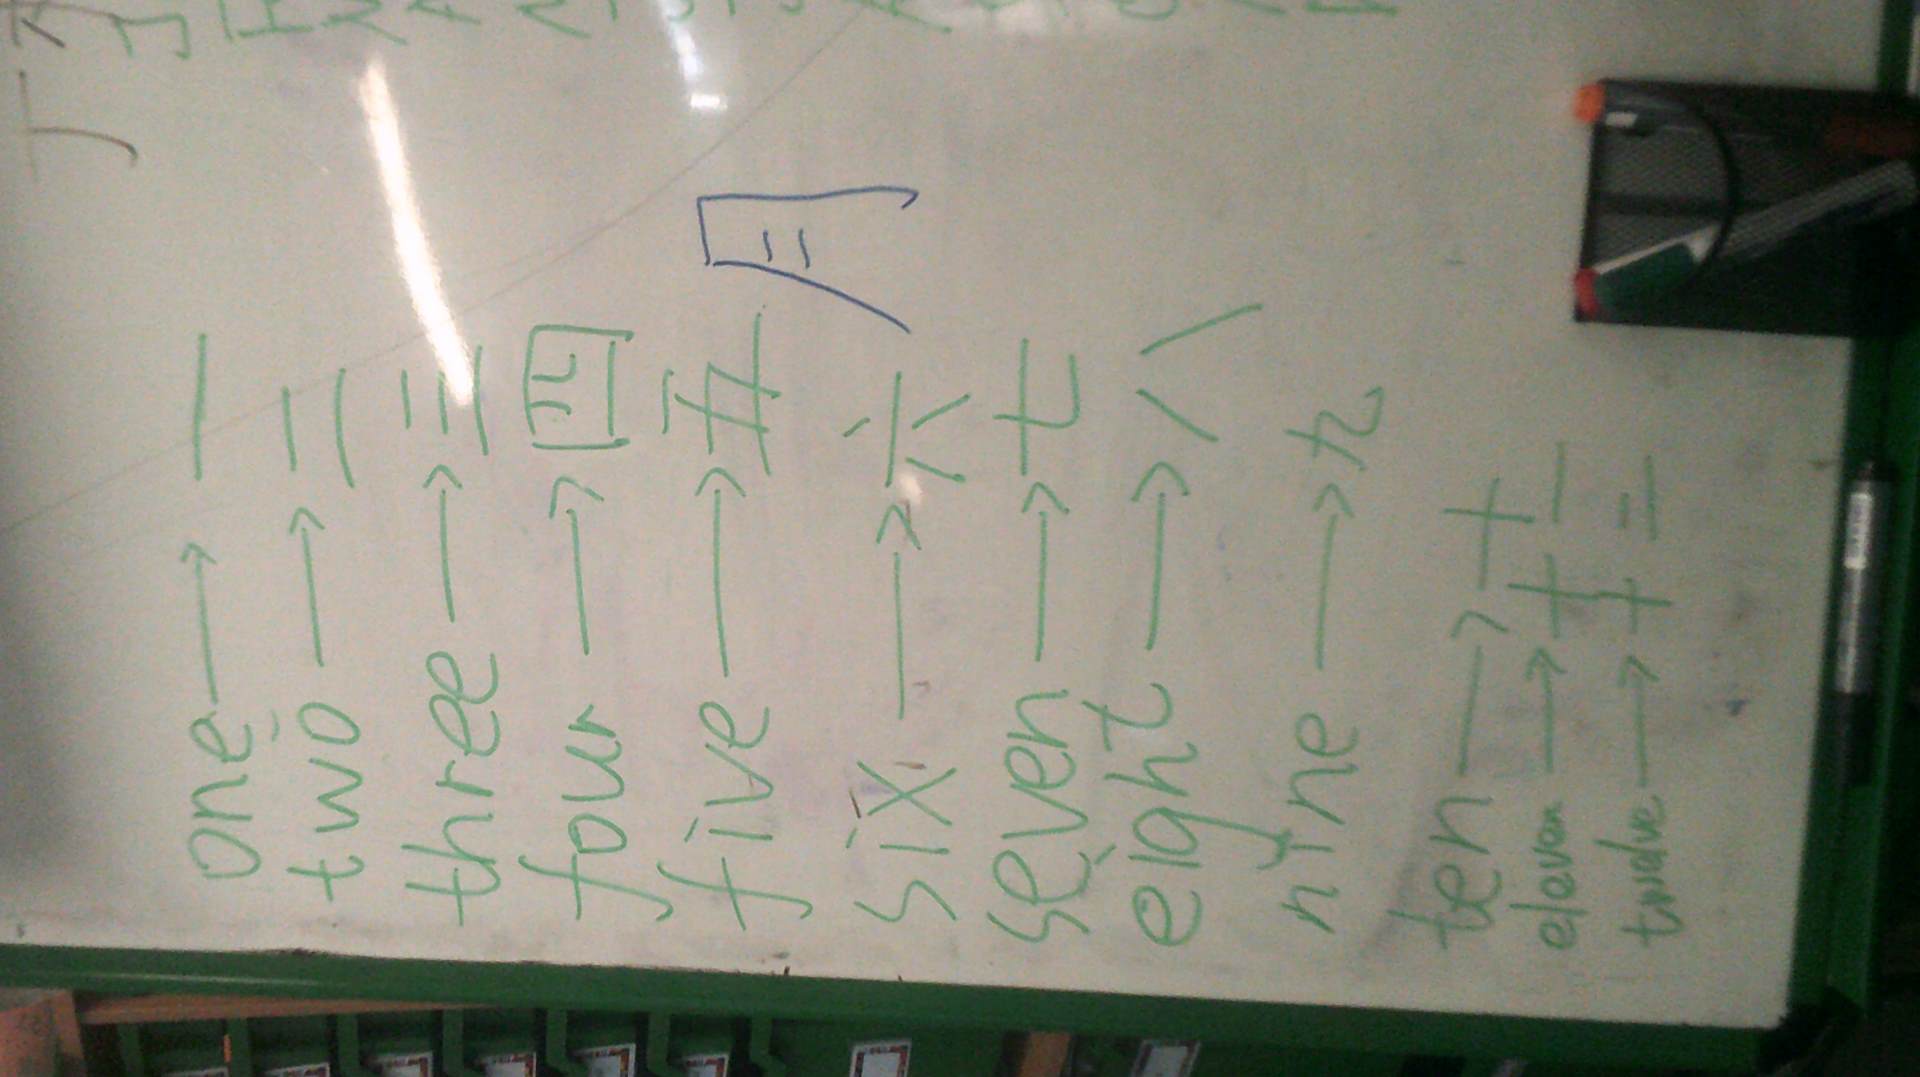 one → 一
two → 二
three → 三
four → 四
five → 五
月
six → 六
seven → 七
eight → 八
nine → 九
ten → 十
eleven → 十一
twelve → 十二